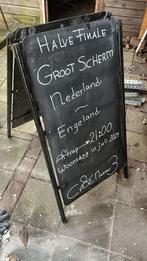 HALVE FINALE
GROOT SCHERM
Nederland
-
Engeland
Aftrap 21:00
Woensdag 10 juli 2024
Café